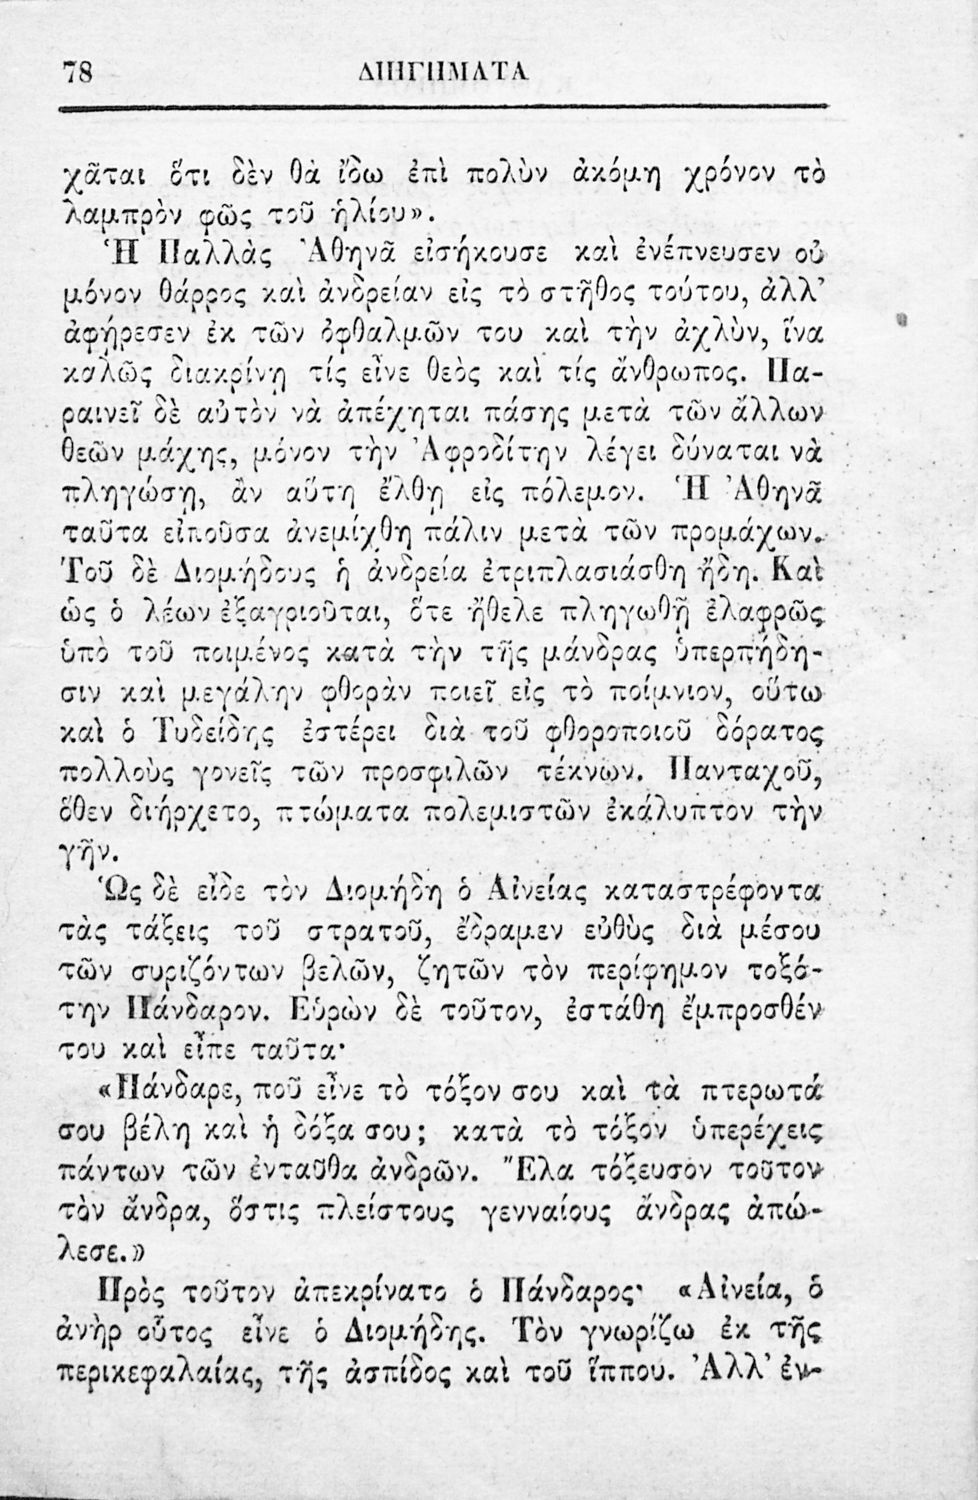 78 ΔΙΗΓΗΜΑΤΑ
χᾶται ὅτι δὲν θὰ ἴδω ἐπὶ πολὺν ἀκόμη χρόνον τὸ
λαμπρὸν φῶς τοῦ ἡλίου».
Ἡ Παλλὰς Ἀθηνᾶ εἰσήκουσε καὶ ἐνέπνευσεν οὐ
μόνον θάρρος καὶ ἀνδρείαν εἰς τὸ στῆθος τούτου, ἀλλ’
ἀφήρεσεν ἐκ τῶν ὀφθαλμῶν του καὶ τὴν ἀχλὺν, ἵνα
καλῶς διακρίνῃ τίς εἶνε θεὸς καὶ τίς ἄνθρωπος. Πα-
ραινεῖ δὲ αὐτὸν νὰ ἀπέχηται πάσης μετὰ τῶν ἄλλων
θεῶν μάχης, μόνον τὴν Ἀφροδίτην λέγει δύναται νὰ
πληγώσῃ, ἂν αὕτη ἔλθῃ εἰς πόλεμον. Ἡ Ἀθηνᾶ
ταῦτα εἰποῦσα ἀνεμίχθη πάλιν μετὰ τῶν προμάχων.
Τοῦ δὲ Διομήδους ἡ ἀνδρεία ἐτριπλασιάσθη ἤδη. Καὶ
ὡς ὁ λέων ἐξαγριοῦται, ὅτε ἤθελε πληγωθῆ ἐλαφρῶς
ὑπὸ τοῦ ποιμένος κατὰ τὴν τῆς μάνδρας ὑπερπήδη-
σιν καὶ μεγάλην φθορὰν ποιεῖ εἰς τὸ ποίμνιον, οὕτω
καὶ ὁ Τυδείδης ἐστέρει διὰ τοῦ φθοροποιοῦ δόρατος
πολλοὺς γονεῖς τῶν προσφιλῶν τέκνων. Πανταχοῦ,
ὅθεν διήρχετο, πτώματα πολεμιστῶν ἐκάλυπτον τὴν
γῆν.
Ὡς δὲ εἶδε τὸν Διομήδη ὁ Αἰνείας καταστρέφοντα
τὰς τάξεις τοῦ στρατοῦ, ἔδραμεν εὐθὺς διὰ μέσου
τῶν συριζόντων βελῶν, ζητῶν τὸν περίφημον τοξό-
την Πάνδαρον. Εὑρὼν δὲ τοῦτον, ἐστάθη ἔμπροσθέν
του καὶ εἶπε ταῦτα·
«Πάνδαρε, ποῦ εἶνε τὸ τόξον σου καὶ τὰ πτερωτά
σου βέλη καὶ ἡ δόξα σου; κατὰ τὸ τόξον ὑπερέχεις
πάντων τῶν ἐνταῦθα ἀνδρῶν. Ἔλα τόξευσον τοῦτον
τὸν ἄνδρα, ὅστις πλείστους γενναίους ἄνδρας ἀπώ-
λεσε.»
Πρὸς τοῦτον ἀπεκρίνατο ὁ Πάνδαρος· «Αἰνεία, ὁ
ἀνὴρ οὗτος εἶνε ὁ Διομήδης. Τὸν γνωρίζω ἐκ τῆς
περικεφαλαίας, τῆς ἀσπίδος καὶ τοῦ ἵππου. Ἀλλ’ ἐν-